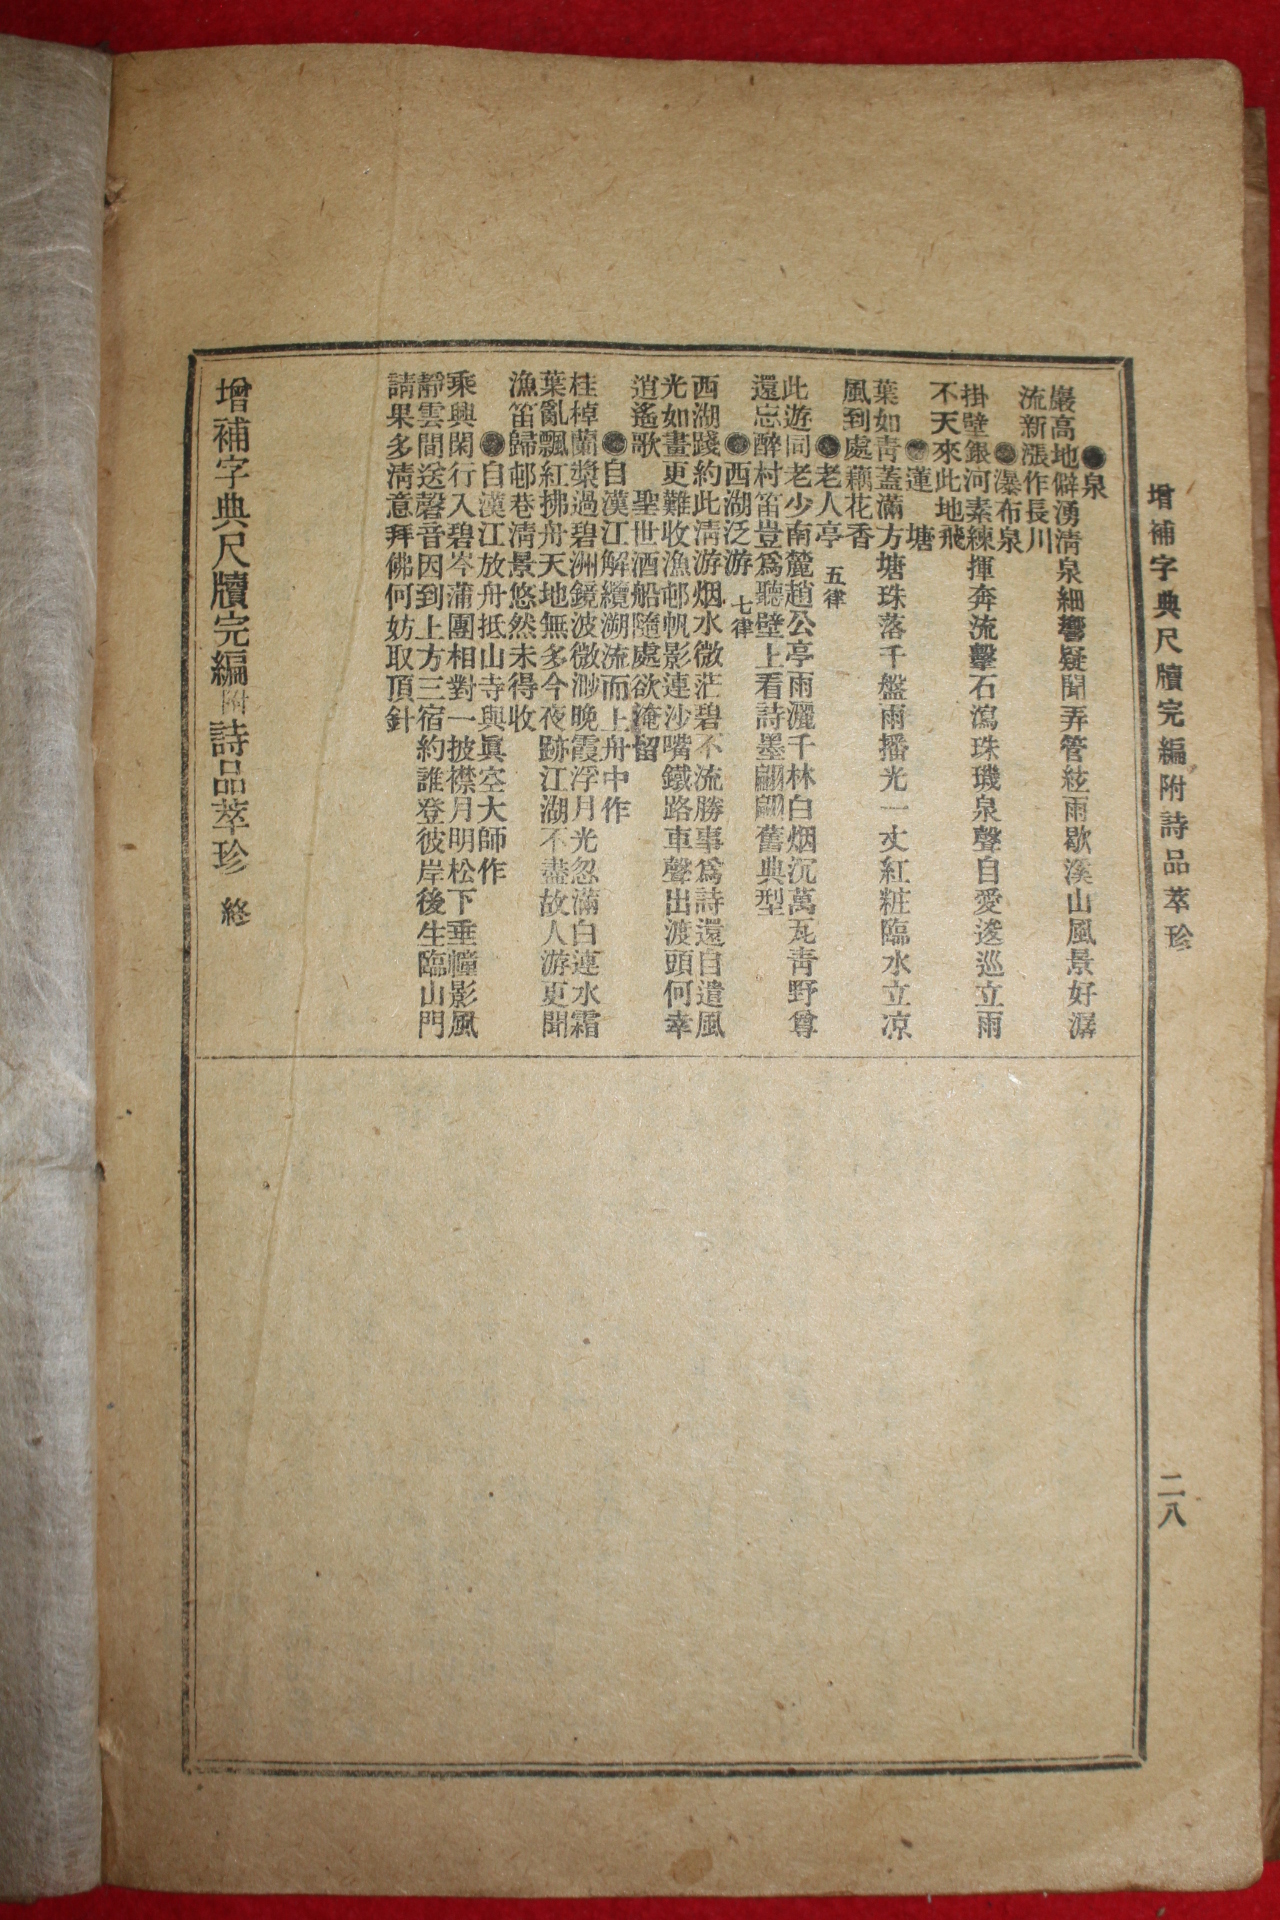 增補字典尺牘完編附詩品萃珍
二八
●泉
巖高地僻湧淸泉細響疑聞弄管絃雨歇溪山風景好潺
流新漲作長川
●瀑布泉
掛壁銀河素練揮奔流擊石瀉珠璣泉聲自愛逡巡立雨
不天來此地飛
●蓮塘
葉如靑蓋滿方塘珠落千盤雨播光一丈紅粧臨水立凉
風到處藕花香
●老人亭 五律
此遊同老少南麓趙公亭雨灑千林白烟沉萬瓦靑野尊
還忘醉村笛豈爲聽壁上看詩墨翩翩舊典型
●西湖泛游 七律
西湖踐約此淸游烟水微茫碧不流勝事爲詩還自遣風
光如畫更難收漁邨帆影連沙嘴鐵路車聲出渡頭何幸
逍遙歌聖世酒船隨處欲淹留
●自漢江解纜溯流而上舟中作
桂棹蘭槳過碧洲鏡波微渺晚霞浮月光忽滿白連水霜
葉亂飄紅拂舟天地無多今夜跡江湖不盡故人游更聞
漁笛歸邨巷淸景悠然未得收
●自漢江放舟抵山寺與眞空大師作
乘興閑行入碧岑蒲團相對一披襟月明松下垂幢影風
靜雲間送磬音因到上方三宿約誰登彼岸後生臨山門
請果多淸意拜佛何妨取頂針
增補字典尺牘完編附詩品萃珍 終